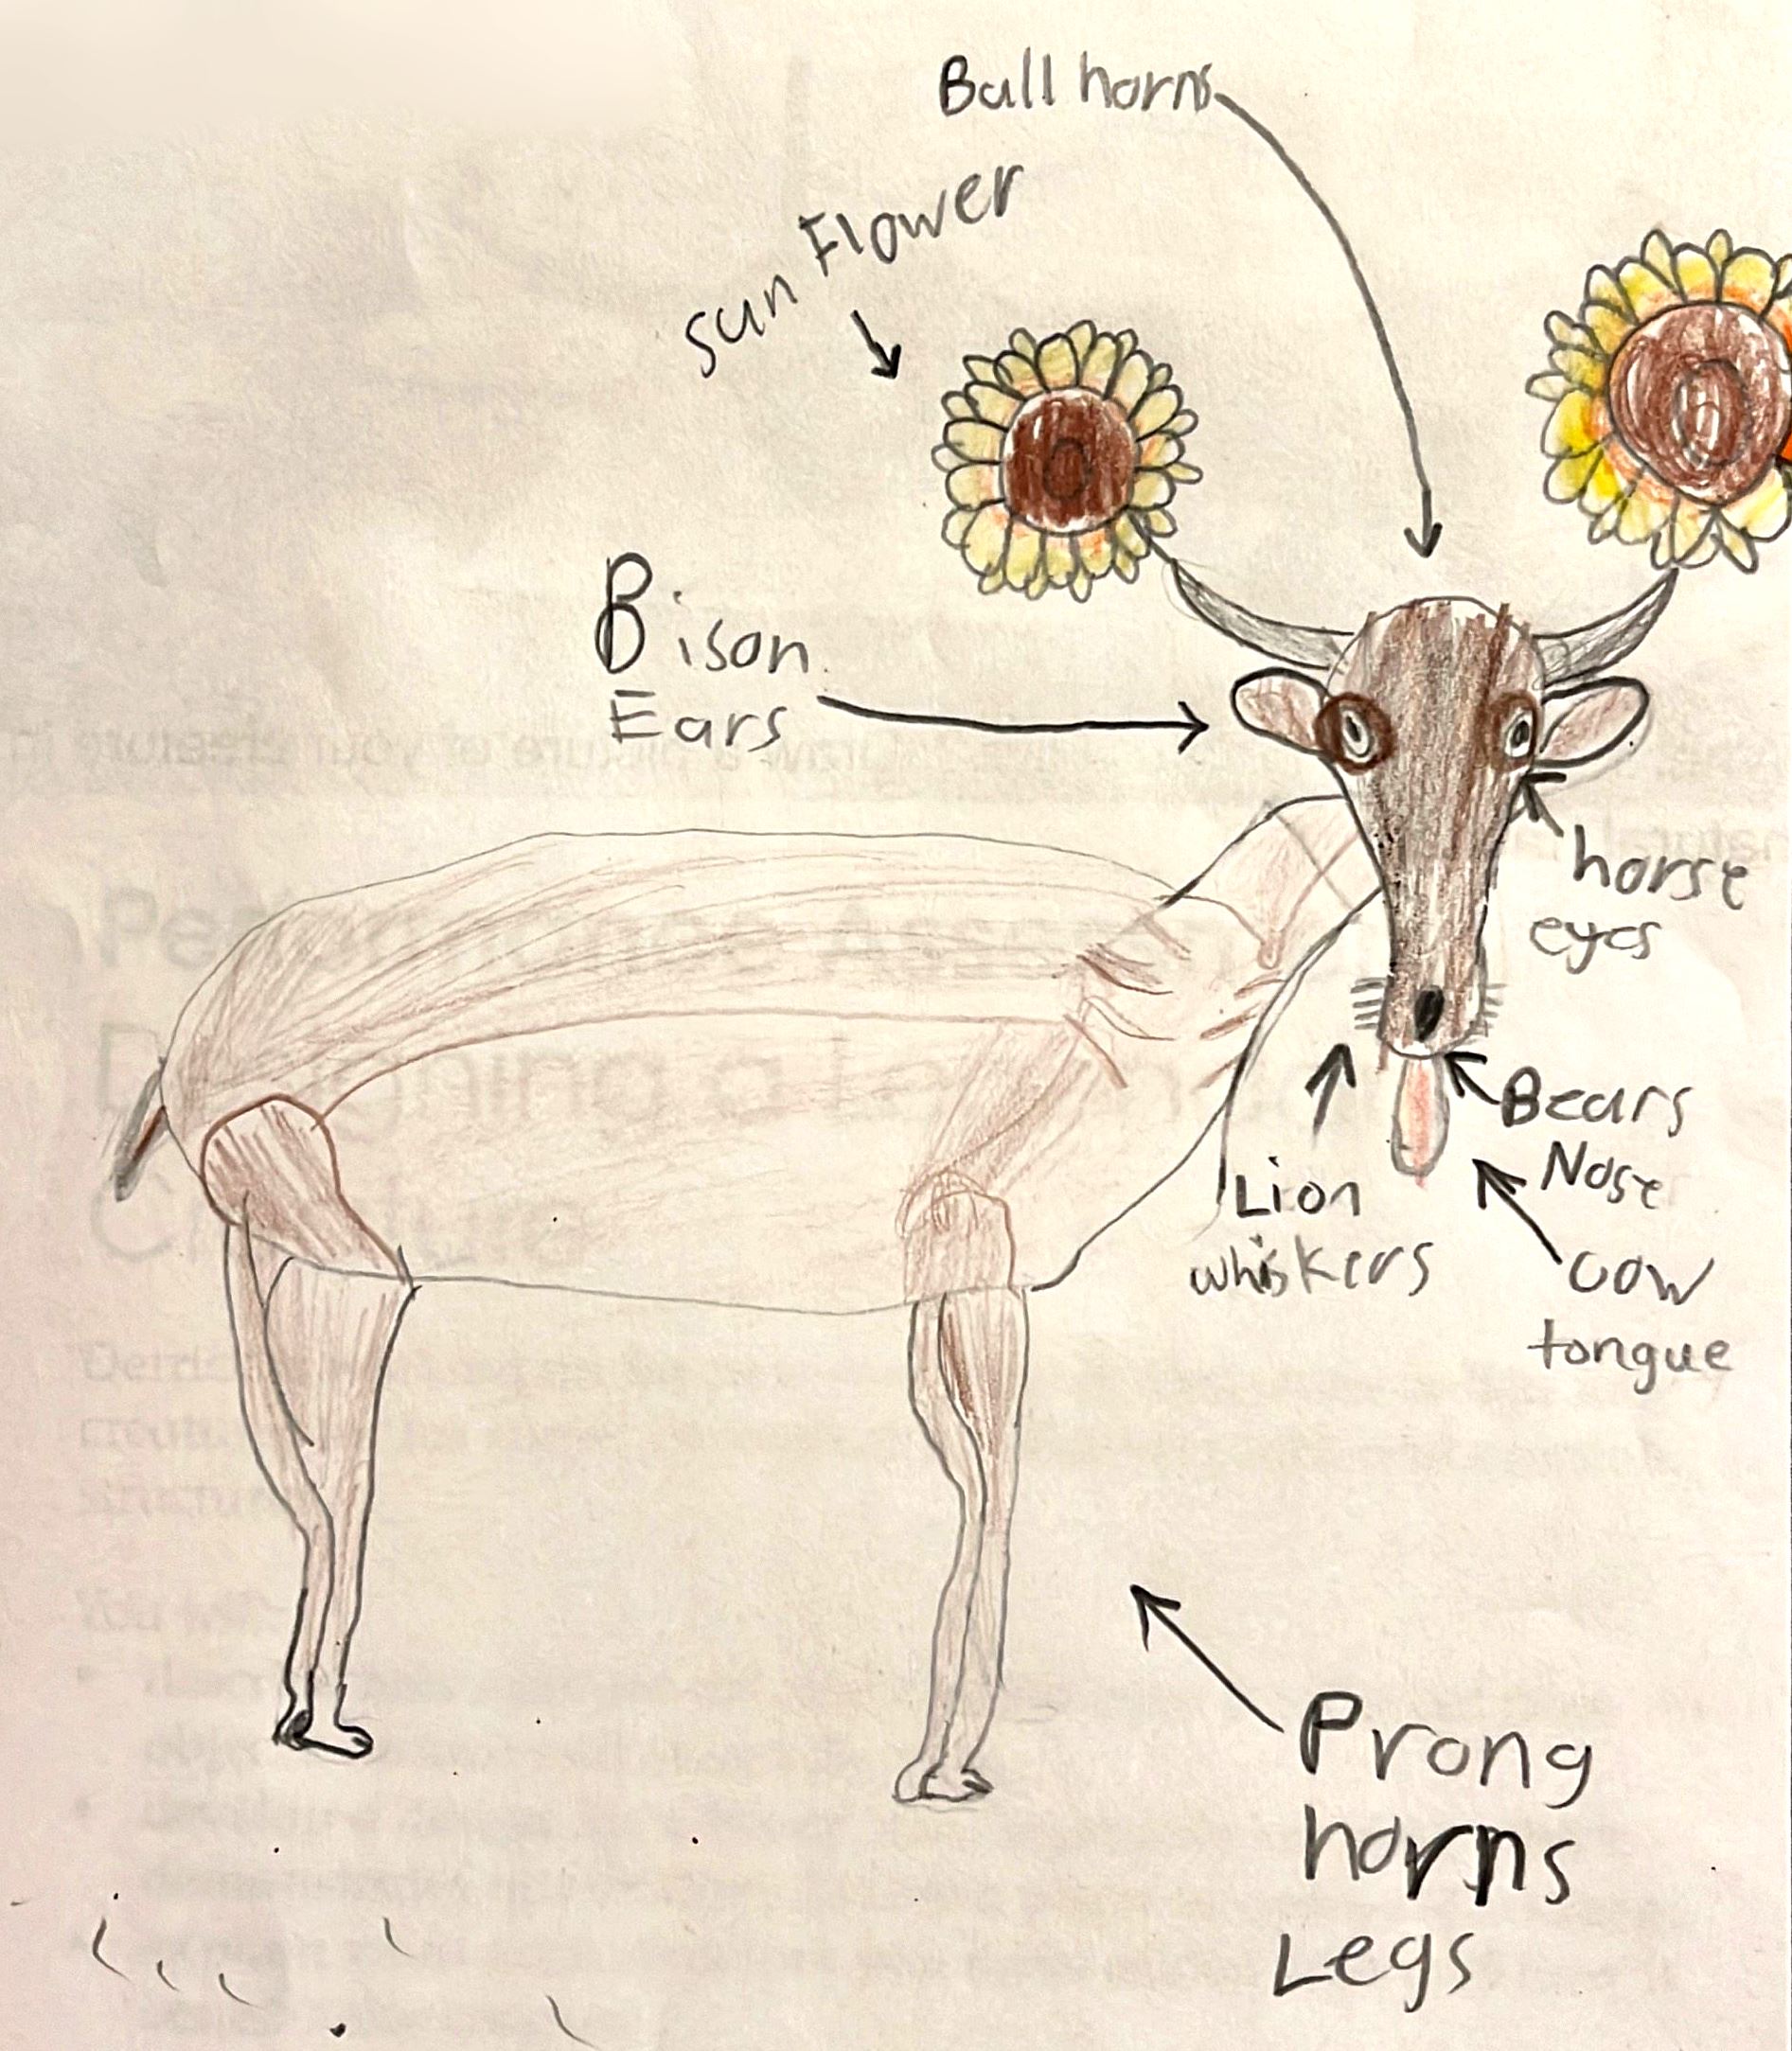 Bull horns
Sun Flower
Bison
Ears
horse
eyes
Bears
Nose
Lion
whiskers
cow
tongue
Prong
horns
Legs